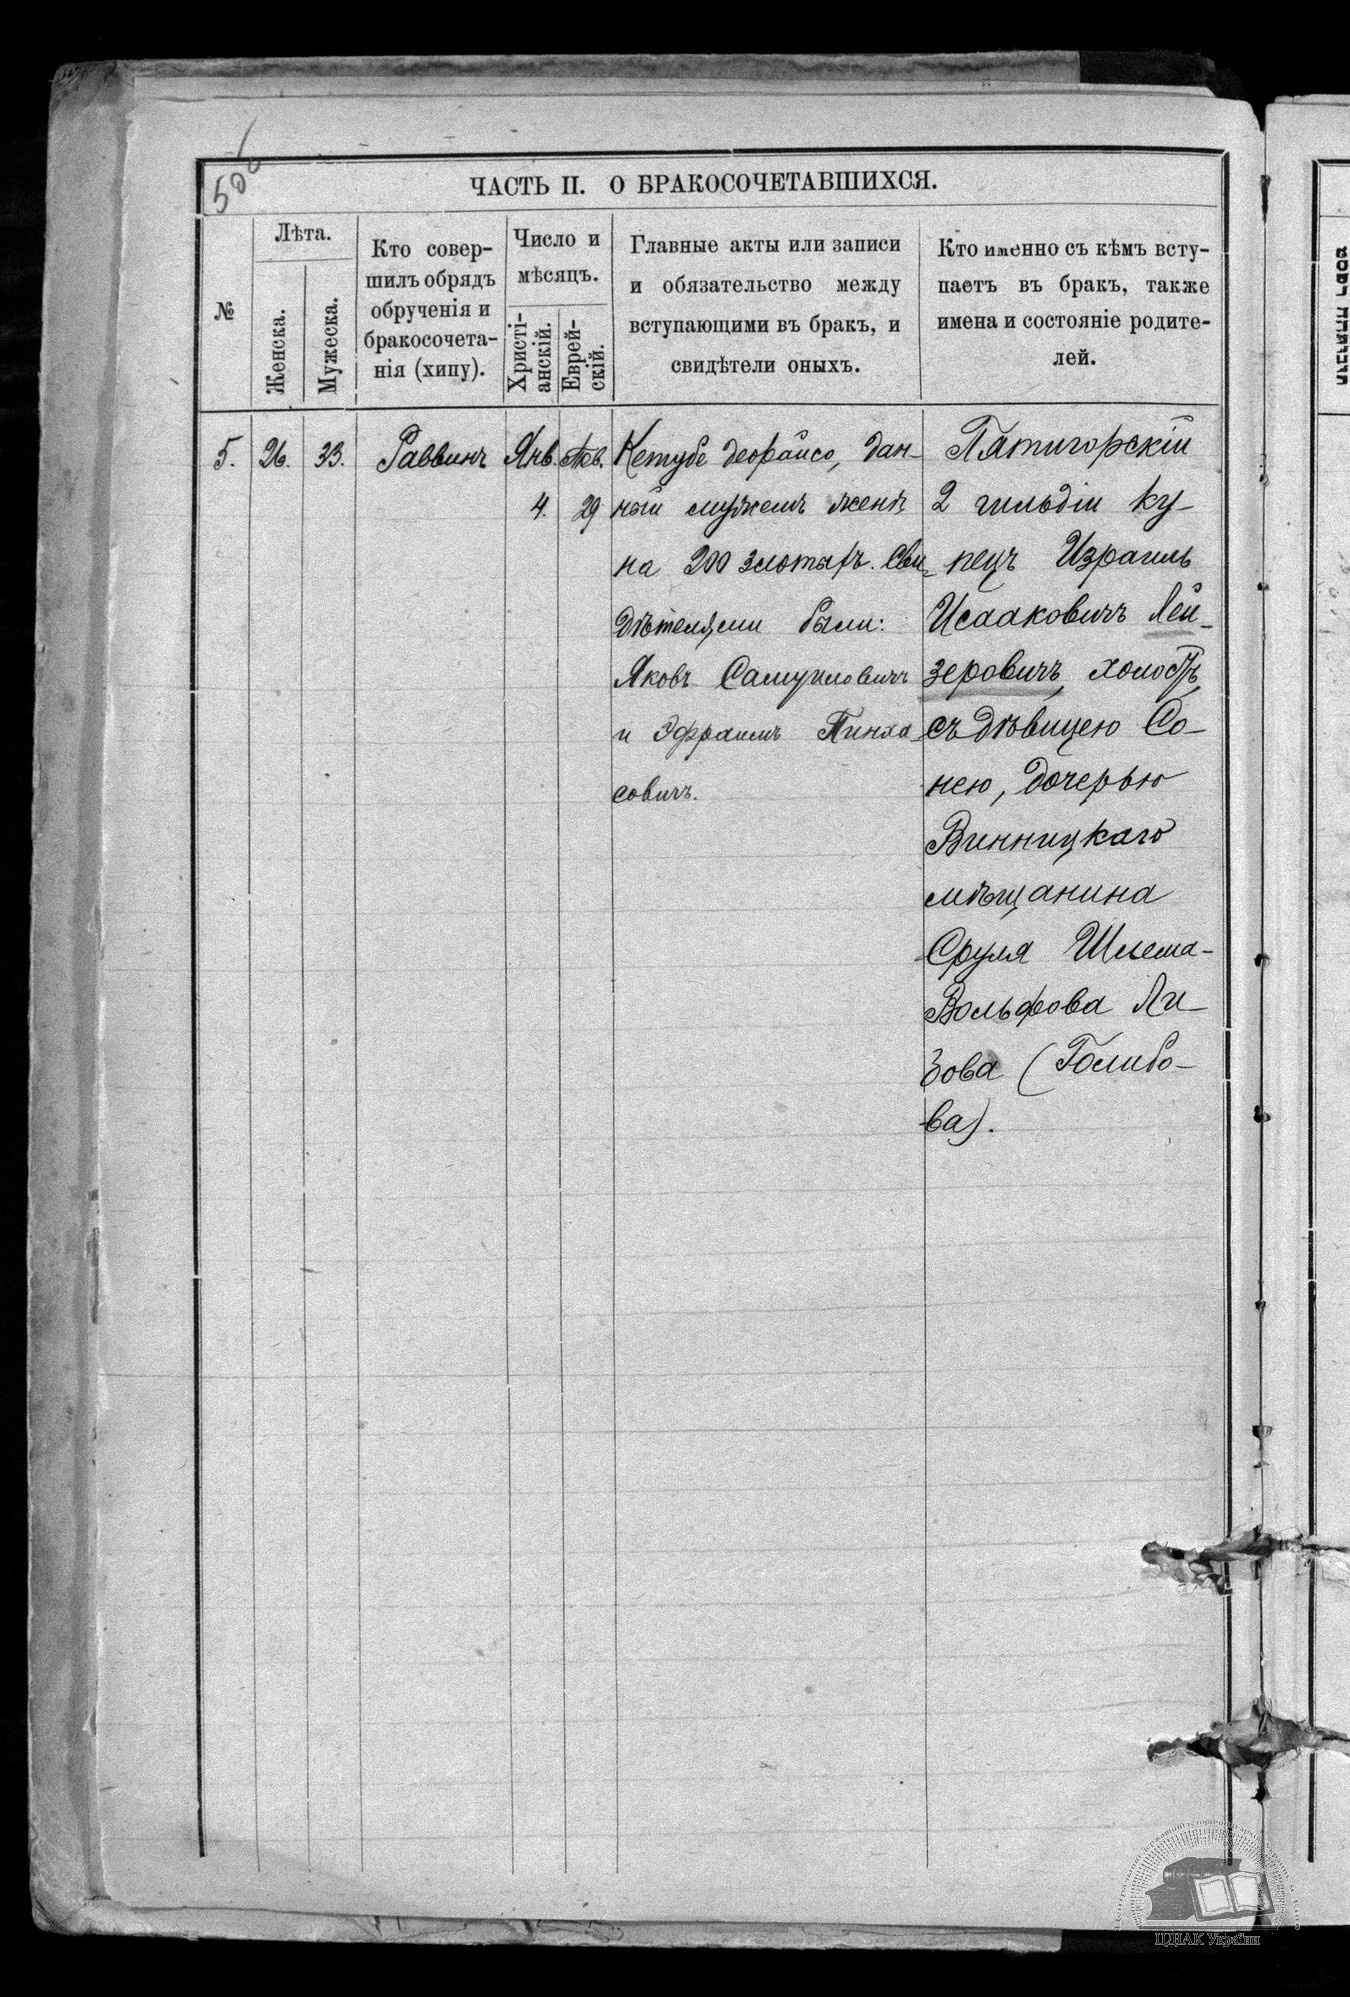 50
ЧАСТЬ II. О БРАКОСОЧЕТАВШИХСЯ.
№
Лѣта.
Женска.
Мужеска.
Кто совер-
шилъ обрядъ
обрученія и
бракосочета-
нія (хипу).
Число и
мѣсяцъ.
Христі-
анскій.
Еврей-
скій.
Главные акты или записи
и обязательство между
вступающими въ бракъ, и
свидѣтели оныхъ.
Кто именно съ кѣмъ всту-
паетъ въ бракъ, также
имена и состояніе родите-
лей.
5.
26.
33.
Раввинъ
Янв.
4.
Тев.
29
Кетубе деорайсо, дан-
ный мужемъ женѣ
на 200 злотыхъ. Сви-
дѣтелями были:
Яковъ Самуиловичъ
и Эфраимъ Пинха-
совичъ.
Пятигорскій
2 гильдіи ку-
пецъ Израиль
Исааковичъ Лей-
зеровичъ, холостъ,
съ дѣвицею Со-
нею, дочерью
Винницкаго
мѣщанина
Сруля Шлема-
Вольфова Ли-
бова (Голибо-
ва).
ЦНАК України